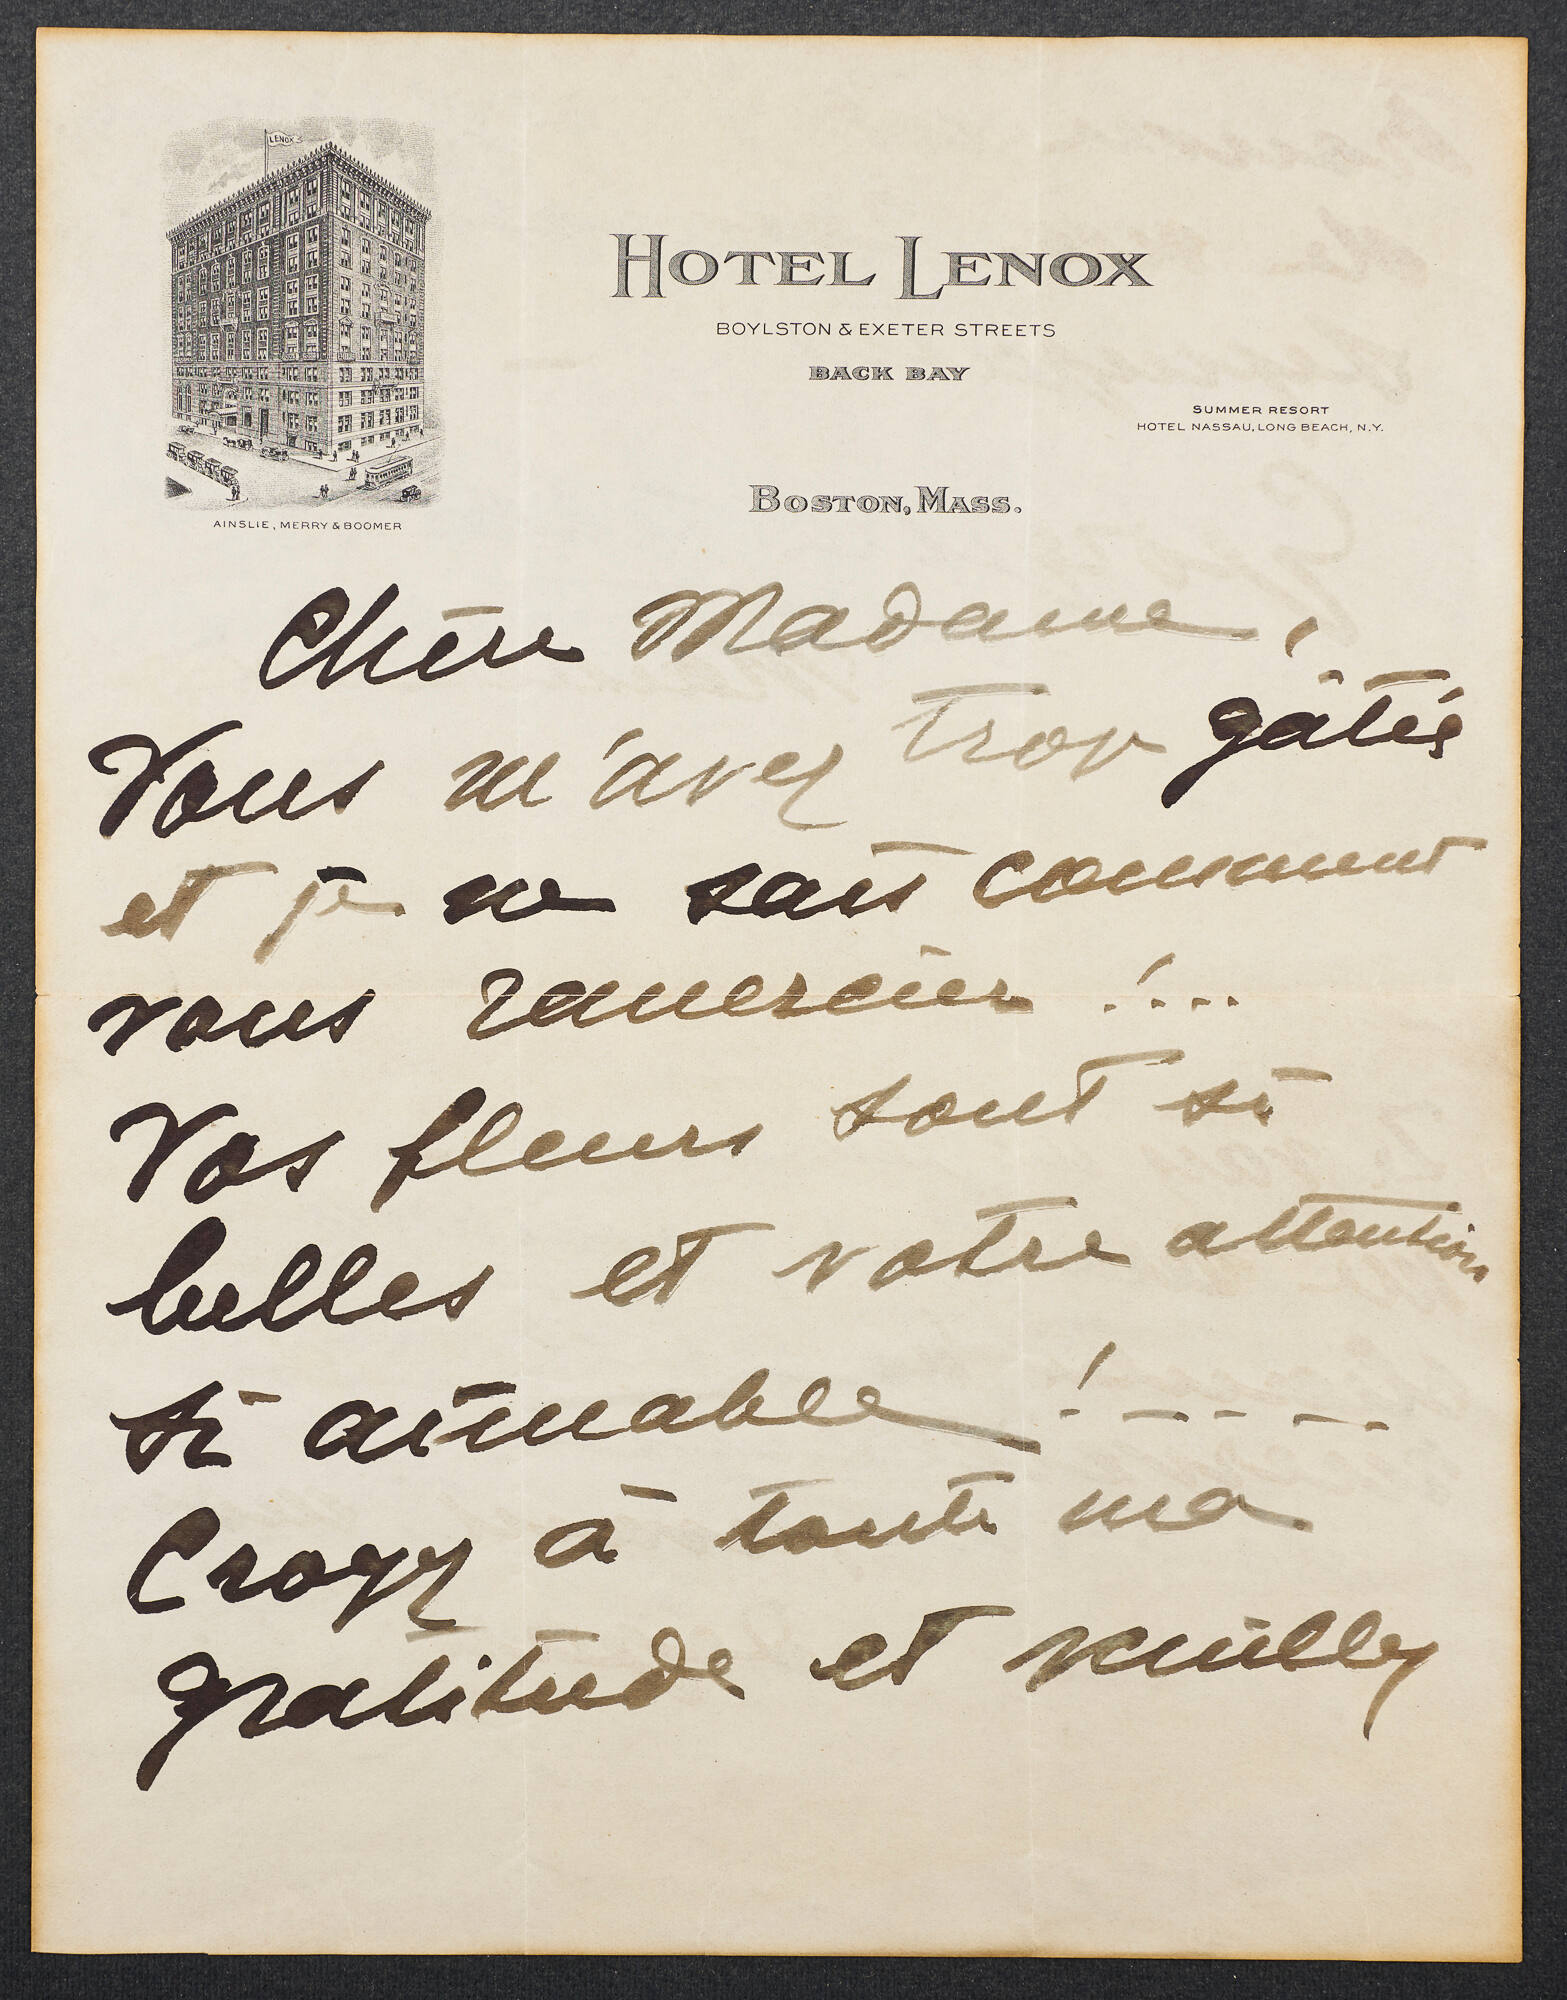 LENOX
HOTEL LENOX
BOYLSTON & EXETER STREETS
BACK BAY
SUMMER RESORT
HOTEL NASSAU, LONG BEACH, N.Y.
BOSTON, MASS.
AINSLIE, MERRY & BOOMER
Chère Madame,
Vous m'avez trop gâtée
et je ne sais comment
vous remercier !...
Vos fleurs sont si
belles et votre attention
si aimable ! _ . _ . _ .
Croyez à toute ma
gratitude et veuillez